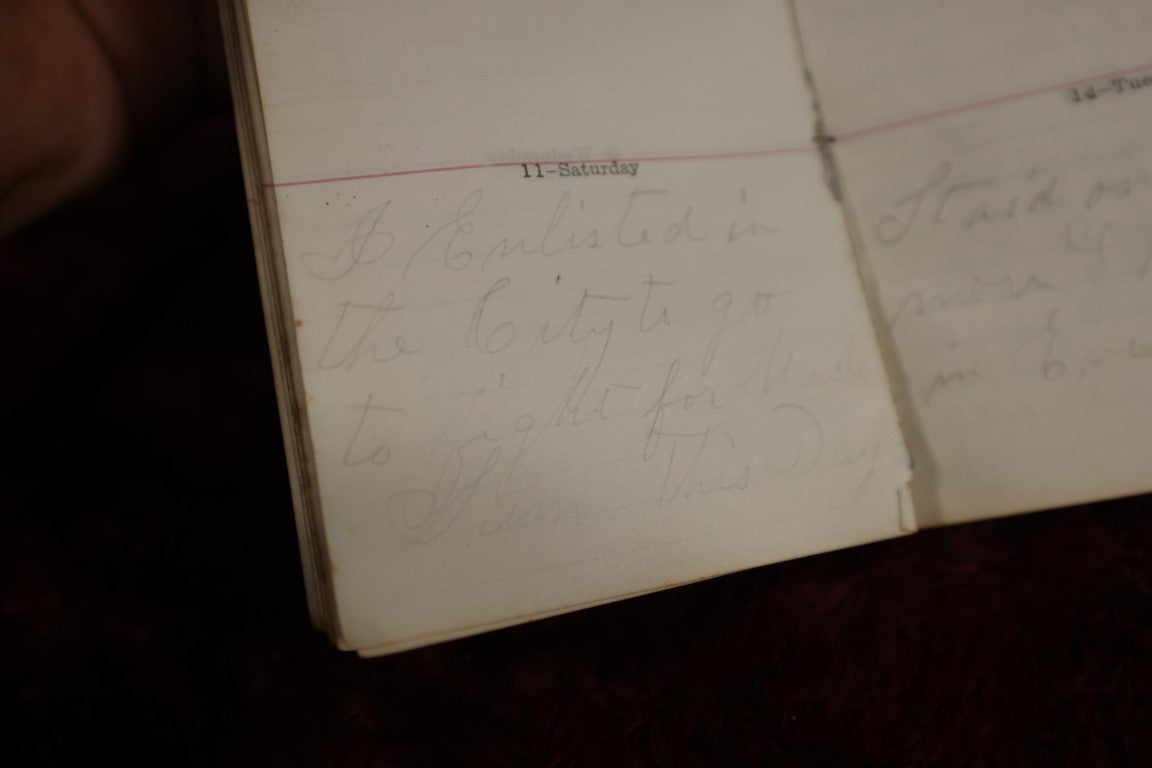 11-Saturday
I Enlisted in
the City to go
to fight for Uncle
Sam This Day
14-Tue
Staid on
morn &
in Eve